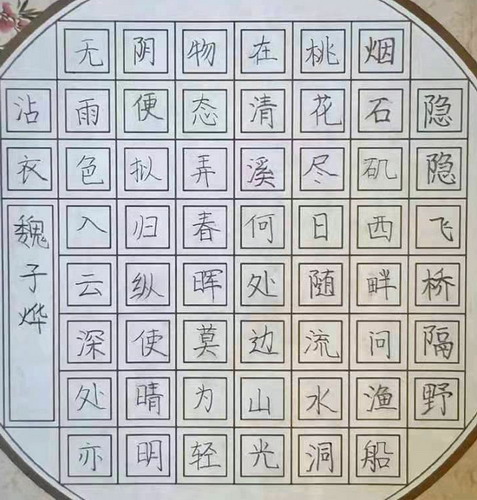 隐隐飞桥隔野
烟石矶西畔问渔船
桃花尽日随流水洞
在清溪何处边山光
物态弄春晖莫为轻
阴便拟归纵使晴明
无雨色入云深处亦
沾衣
魏子烨